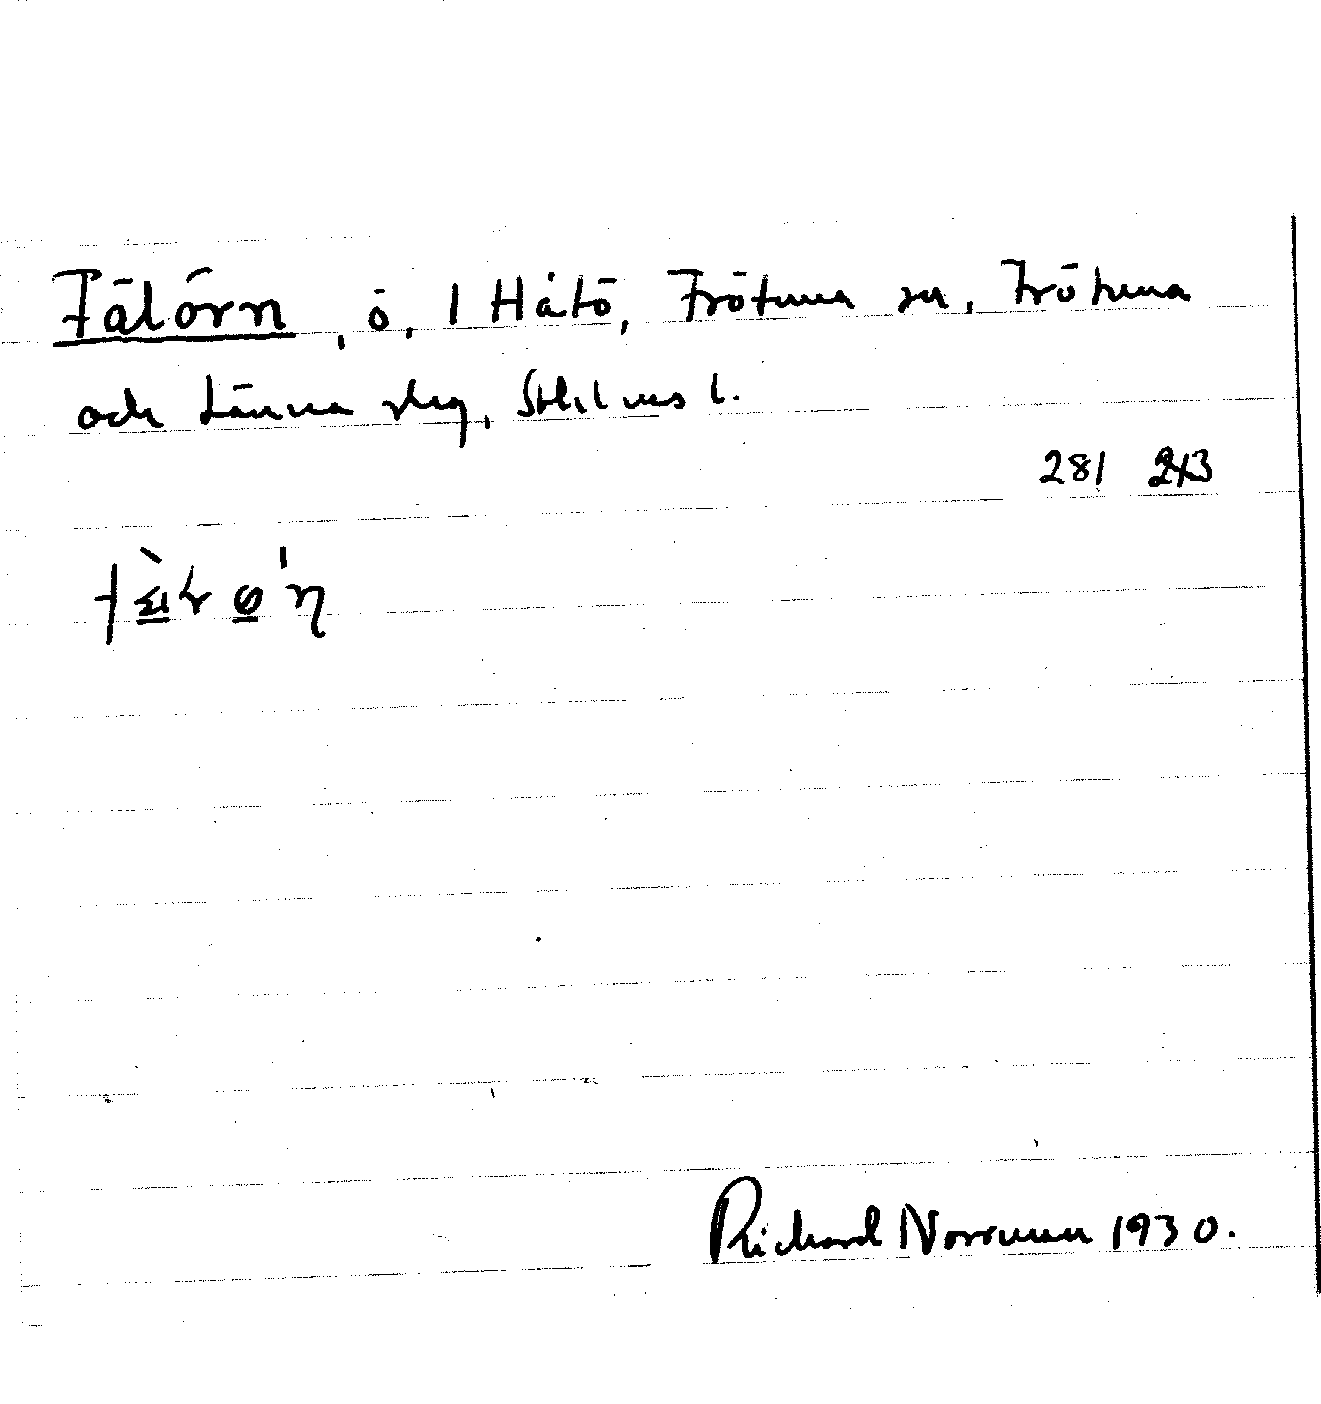 Fälörn, ö, I Håtö, Frötuna sn, Frötuna
och Länna skg, Sthlms l.
281 243
Richard Norrman 1930.